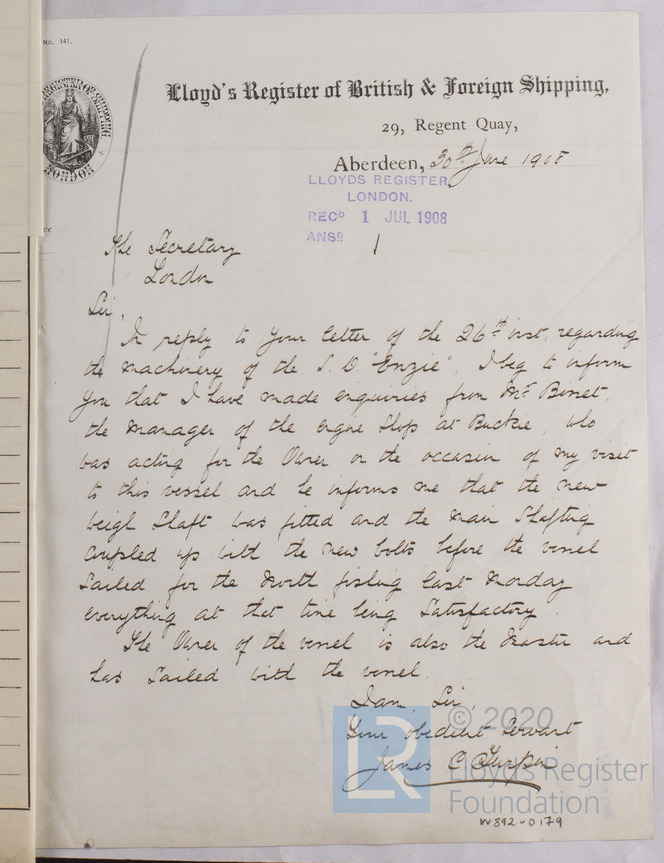 No. 141.
LONDON
Lloyd's Register of British & Foreign Shipping,
29, Regent Quay,
Aberdeen, 30th June 1908
LLOYDS REGISTER,
LONDON.
RECD 1 JUL 1908
ANSD
The Secretary
London
Sir,
In reply to your letter of the 26th inst. regarding
the machinery of the S.D "Enzie", I beg to inform
you that I have made enquiries from Mr
the manager of the engine shops at Buckie, who
was acting for the Owner on the occasion of my visit
to this vessel and he informs me that the new
weigh shaft was fitted and the main shafting
coupled up with the new bolts before the vessel
sailed for the North fishing last Monday
everything at that time being satisfactory.
The Owner of the vessel is also the Master and
has sailed with the vessel.
I am, Sir,
Your obedient Servant
James C Turpin
© 2020
LR
Lloyd's Register
Foundation
W892-0179